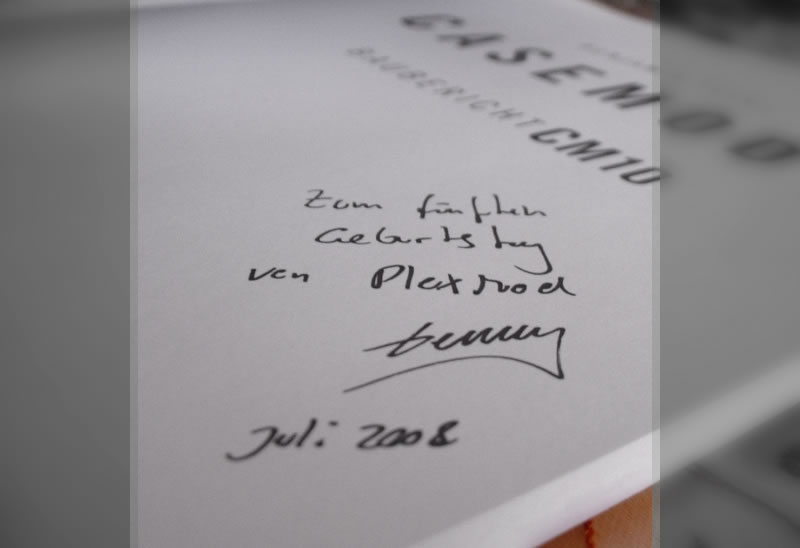 CASEMOD
BAUBERICHT CM10
Zum fünften
Geburtstag
von PlexMod
Juli 2008